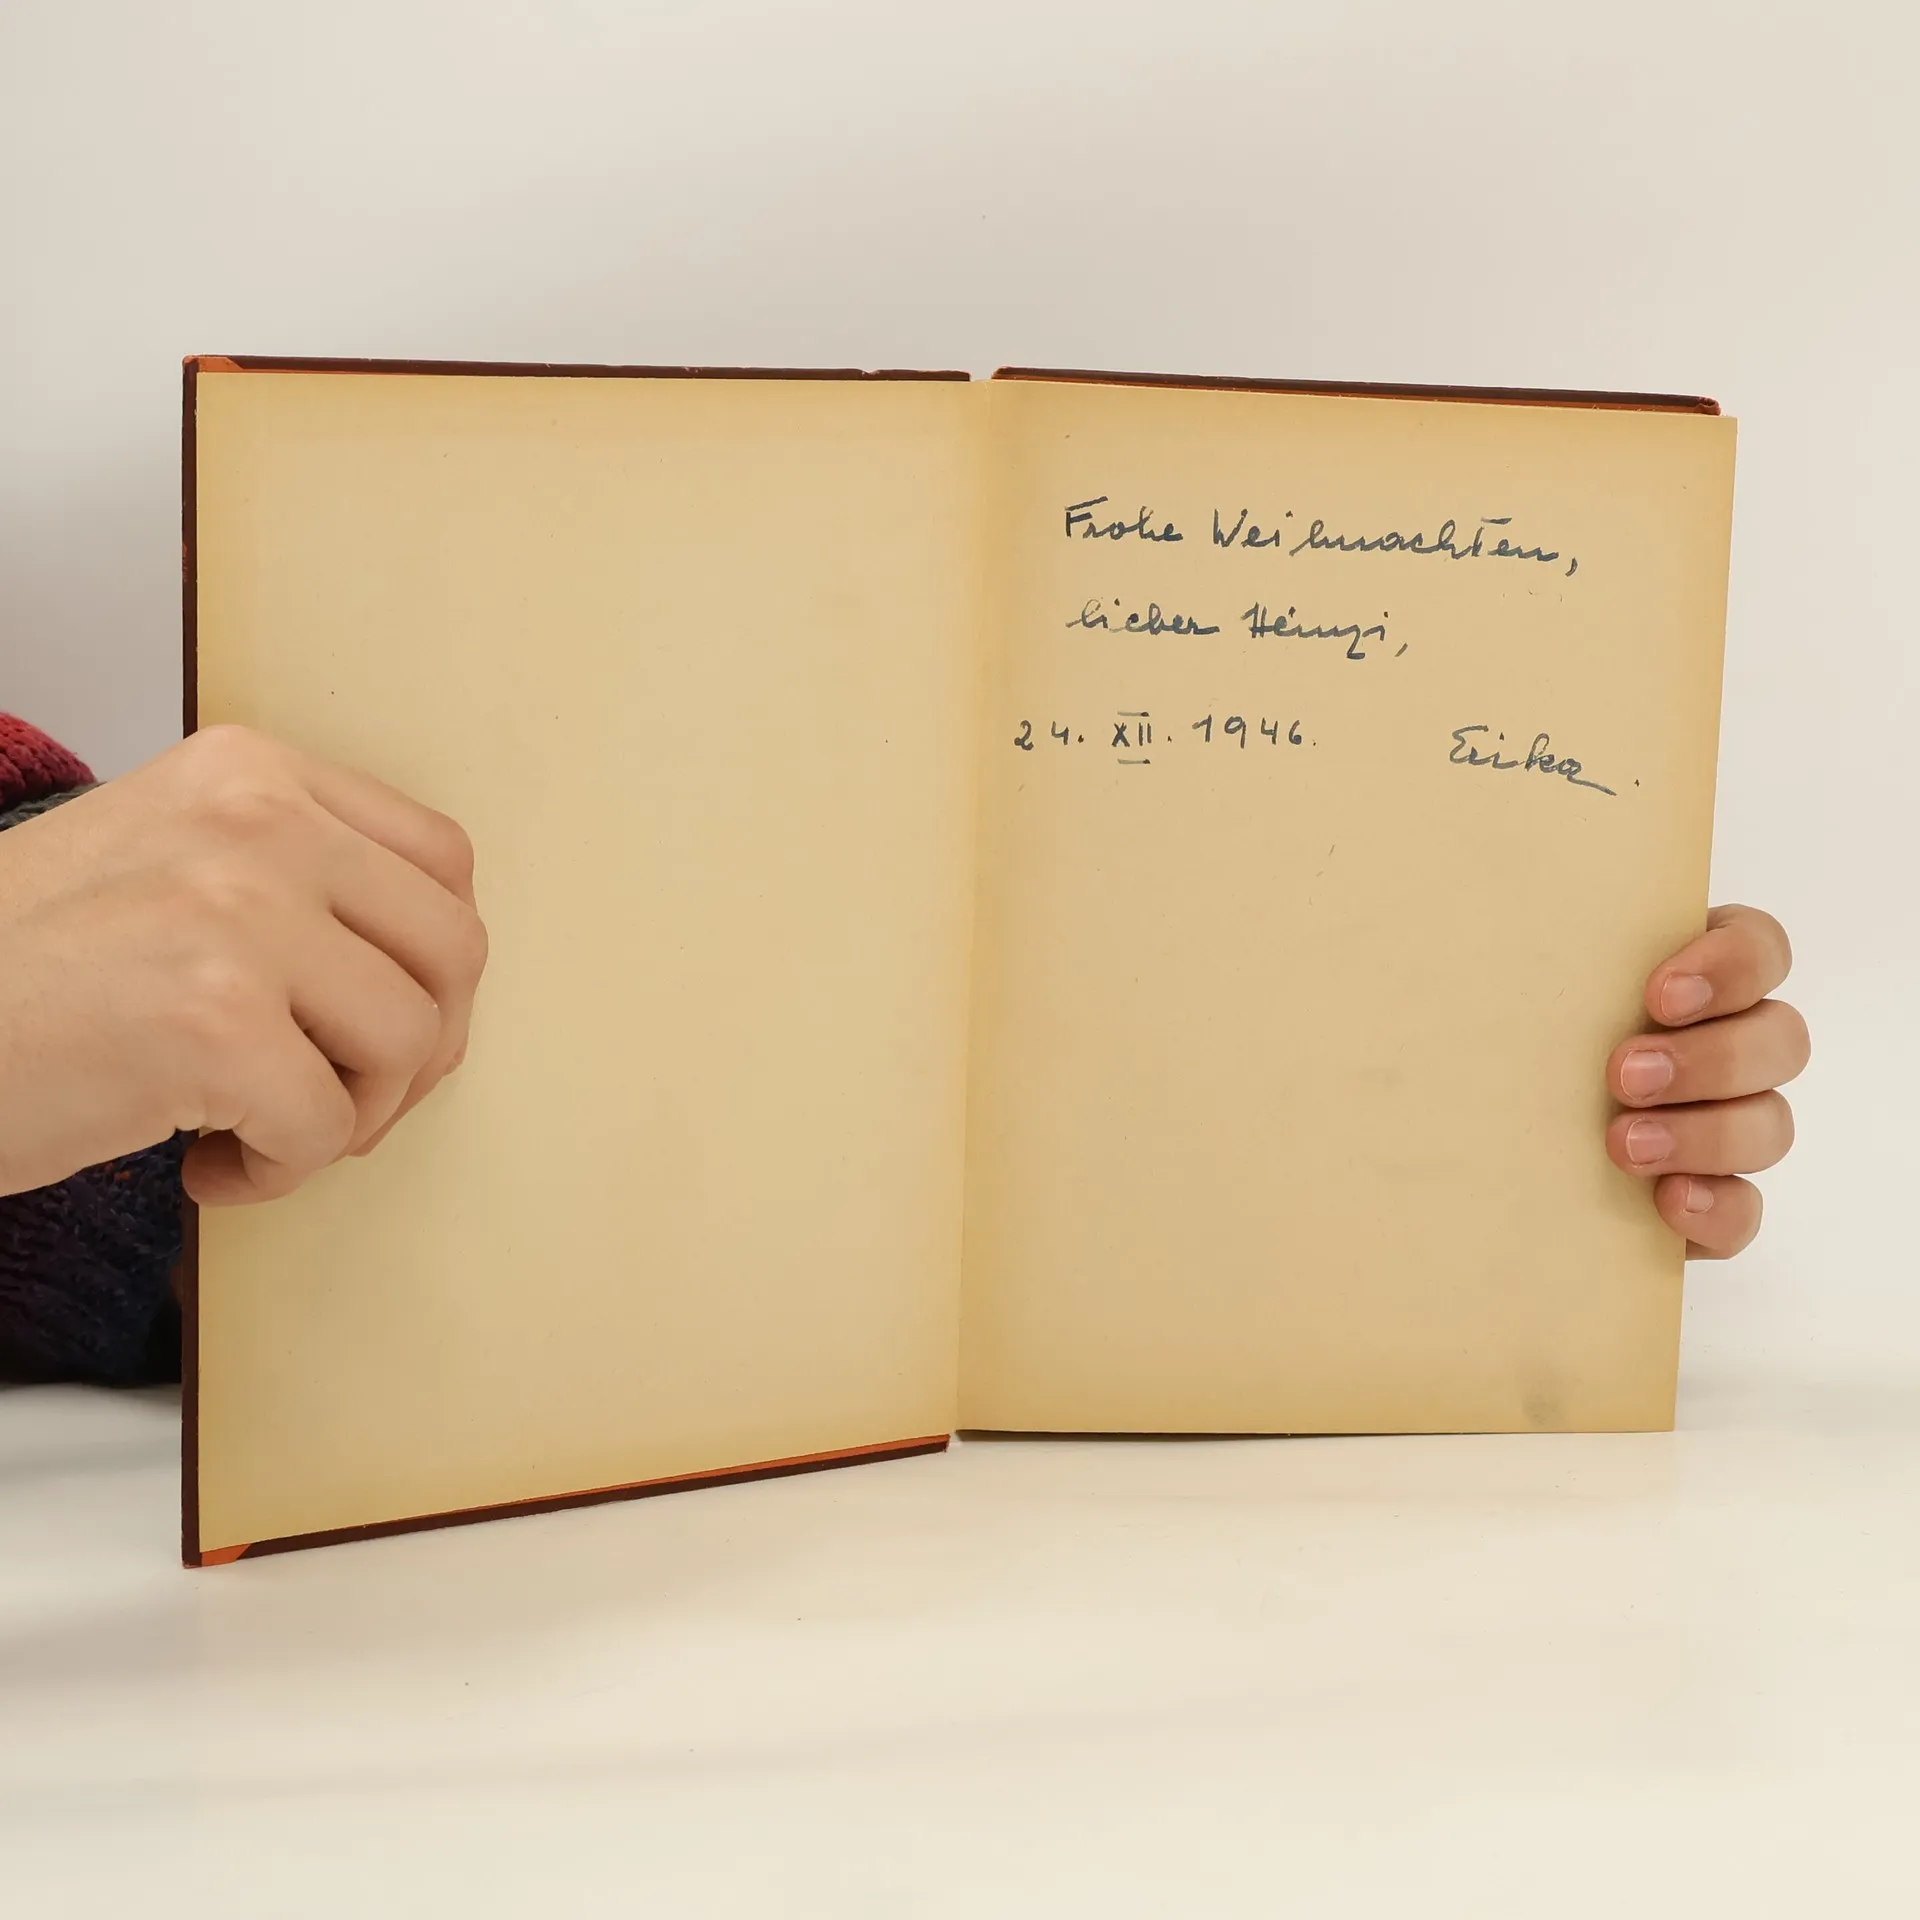 Frohe Weihnachten,
lieber Heinzi,
24. XII. 1946. Erika.